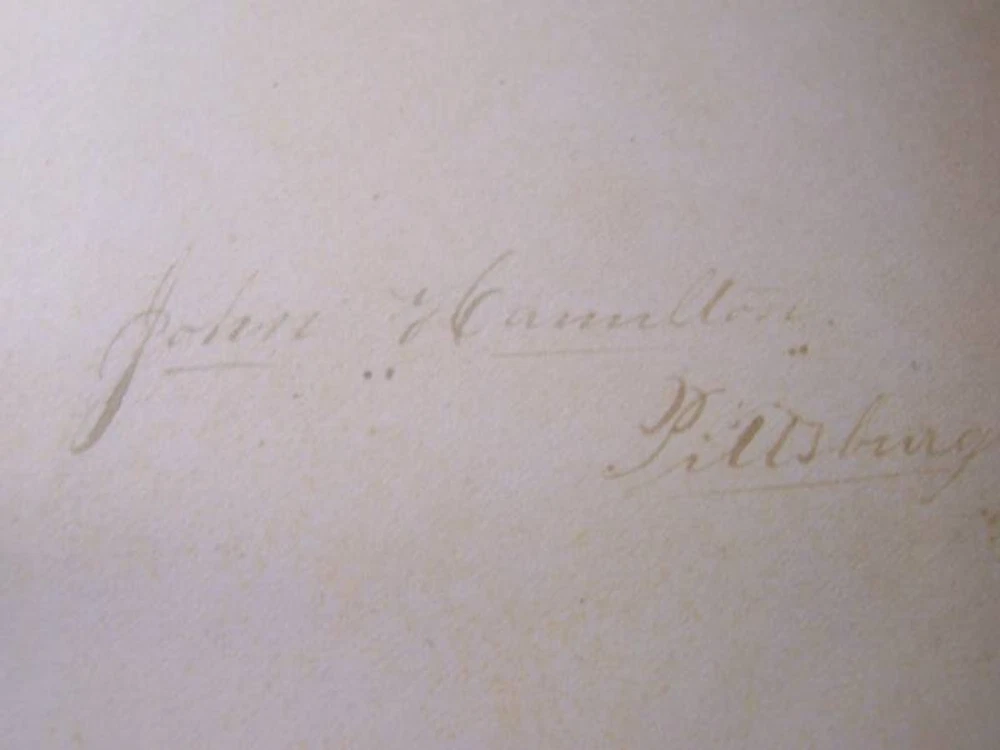 John Hamilton.
Pittsburg